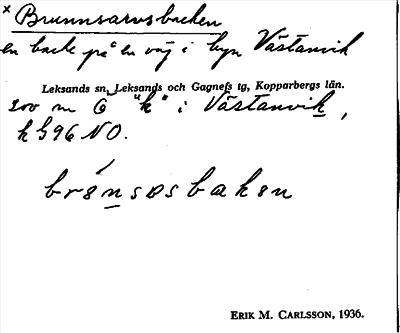 × Brunnsarvsbacken
en backe på en väg i byn Västanvik
Leksands sn, Leksands och Gagnefs tg, Kopparbergs län.
200 m Ö "k" i Västanvik,
k 596 NO.
brǿnsɒsbakən
ERIK M. CARLSSON, 1936.